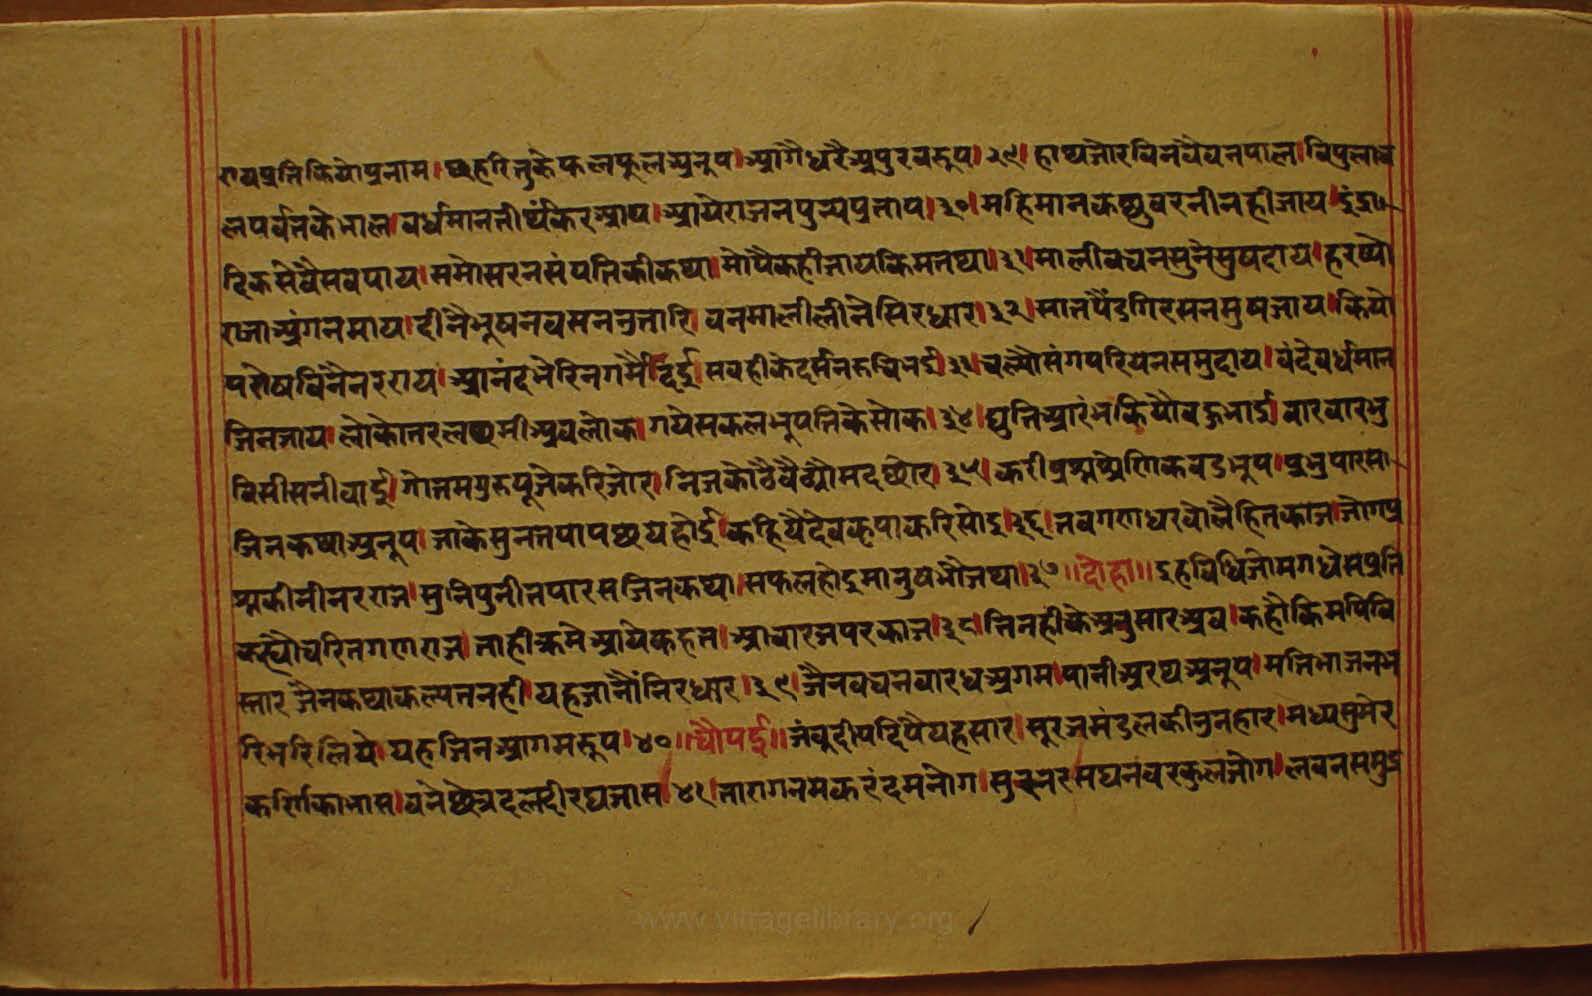 रायप्रतिकियोप्रनाम। छहरितुकेफलफूलअनूप। आगैधरैअपुरवरूप। २९। हाथजोरविनवैवनपाल। विपुलाच
लपर्वतकेभाल। वर्धमानतीर्थंकरआप। आयेराजनपुन्यप्रताप। ३०। महिमानकछुवरनीनहीजाय। इंद्रा
दिकसेवैसवपाय। समोसरनसंपतिकीकथा। मोपैकहीजायकिमतथा। ३१। मालीवचनसुनेसुषदाय। हरष्यौ
राजाअंगनमाय। दीनैभूषनवसनउतारि। वनमालीलीनेसिरधार। ३२। सातपैंडगिरसनमुषजाय। कियो
परोषविनैनरराय। आनंदभेरिनगरमैंदिई। सवहीकेदर्सनरुचिभई। ३३। चल्यौसंगपरियनसमुदाय। वंदेवर्धमान
जिनजाय। लोकोतरलछमीअवलोक। गयेसकलभूपतिकेसोक। ३४। थुतिआरंभकियौवहुभाई। वारवारभु
विसीसनीवाई। गोतमगुरुपूजेकरिजोर। निजकोठैवैठ्यौमदछोर। ३५। करीप्रश्नश्रेणिकवडभूप। प्रभुपारसा
जिनकथाअनूप। जाकेसुनतपापछयहोई। कहियैदेवकृपाकरिसोइ। ३६। तवगणधरवोलैहितकाज। जोगप्र
श्नकीनीनरराज। सुनिपुनीतपारसजिनकथा। सफलहोइमानुषभौजथा। ३७॥ दोहा॥ इहविधिजोमगधेसप्रति
कह्यौचरितगणराज। ताहीक्रमेआयेकहत। आचारजपरकाज। ३८। तिनहीकेअनुसारअव। कहौकिमपिवि
स्तार जैनकथाकल्पतनही। यहजानौंनिरधार। ३९। जैनवचनवारधअगम। पानीअरथअनूप। मतिभाजनभ
रिभरिलिये। यहजिनआगमरूप। ४०॥ चौपई॥ जंवुदीपदिपैयहसार। सूरजमंडलकीउनहार। मध्यसुमेर
कर्णिकाभास। वनेछेत्रदलदीरघजास। ४१। तारागनमकरंदमनोग। सुरनरसघनवरकुलजोग। लवनसमुद्र
www.vitragelibrary.org